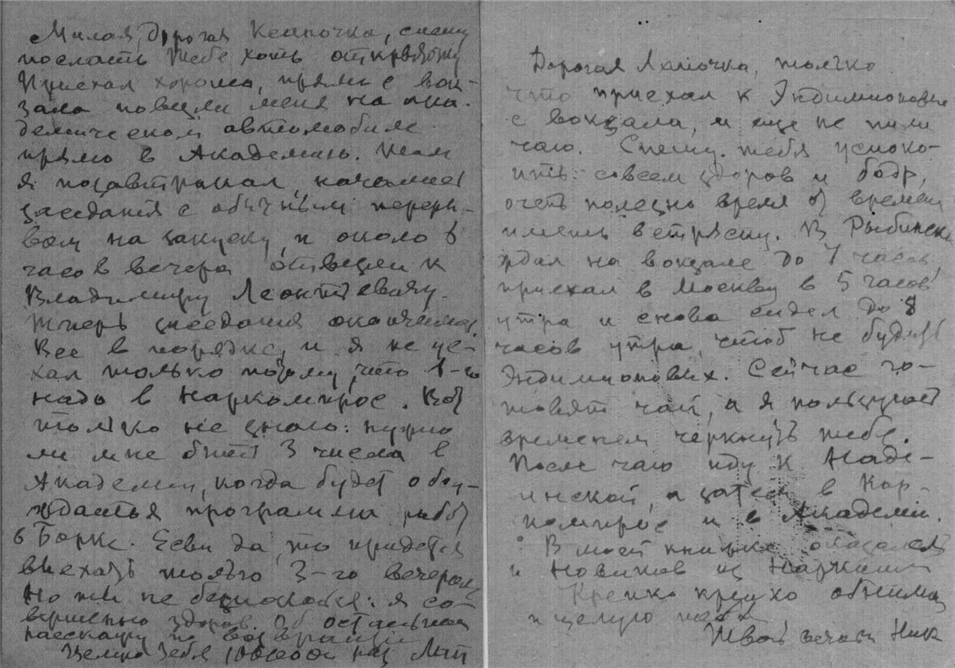 Милая, дорогая Ксеничка, спешу
послать тебе хоть открытку
Приехал хорошо, прямо с вок-
зала повезли меня на ака-
демическом автомобиле
прямо в Академию. Там
я позавтракал, начались
заседания с обычным переры-
вом на закуску, и около 6
часов вечера отвезли к
Владимиру Леонтьевичу.
Теперь заседания окончились
Все в порядке, и я не уе-
хал только потому, что 1-го
надо в Наркомпрос. Вот
только не знаю: нужно
ли мне быть 3 числа в
Академии, когда будет обсу-
ждаться программа работ
в Борке. Если да, то придется
выехать только 3-го вечером
Но ты не беспокойся: я со-
вершенно здоров. Об остальном
расскажу по возвращении
Целую тебя раз
Дорогая Лапочка, только
что приехал к Эндимионовым
с вокзала, и еще не пили
чаю. Спешу тебя успоко-
ить: совсем здоров и бодр,
очень полезно время от времени
иметь встряску. В Рыбинске
ждал на вокзале до 7 часов,
приехал в Москву в 5 часов
утра и снова сидел до 8
часов утра, чтоб не будить
Эндимионовых. Сейчас го-
товят чай, а я пользуюсь
временем черкнуть тебе.
После чаю иду к Наде-
инской а затем в Нар-
компрос и в Академию.
В моей книжке оказался
и Новиков из
Крепко крепко обнимаю
и целую
Твой вечно Ник